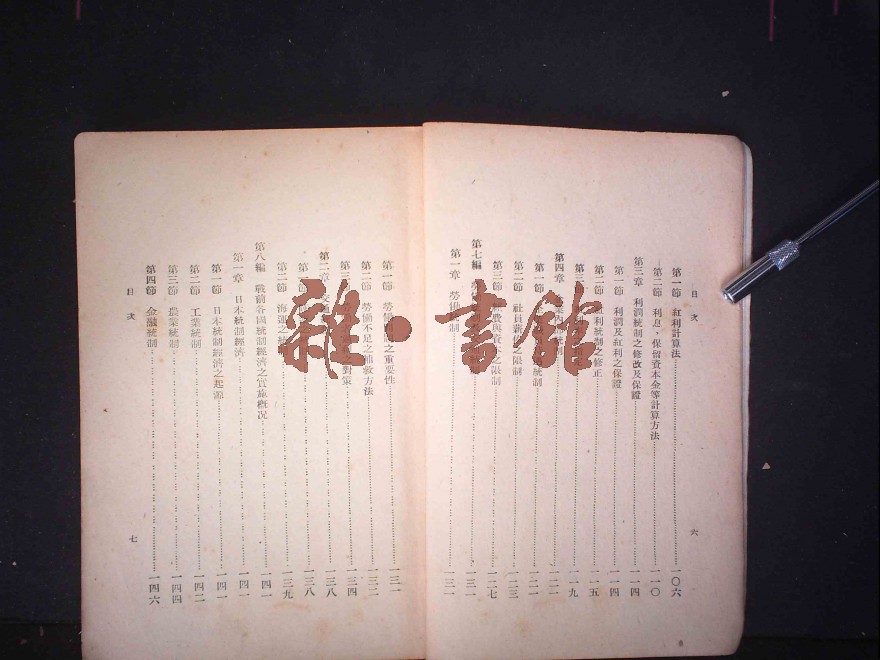 目次
六
第一節 紅利計算法 一〇六
第二節 利息，保留資本金等計算方法 一一〇
第三章 利潤統制之修改及保證 一一四
第一節 利潤及紅利之保證 一一四
第二節 紅利統制之修正 一一五
第三 一一九
第四章
第一節 統制 一二一
第二節 社員薪 之限制 一二三
第三節 限制 一二七
第七編 勞 一三一
第一章 勞働 制 一三一
第一節 勞働 制之重要性 一三一
第二節 勞働不足之補救方法 一三二
第三 對策 一三四
第二章 交通 一三八
第一節 一三八
第二節 海運之統 一三九
第八編 戰前各國統制經濟之實施概况 一四一
第一章 日本統制經濟 一四一
第一節 日本統制經濟之起源 一四一
第二節 工業統制 一四二
第三節 農業統制 一四四
第四節 金融統制 一四六
目次
七
雜·書館